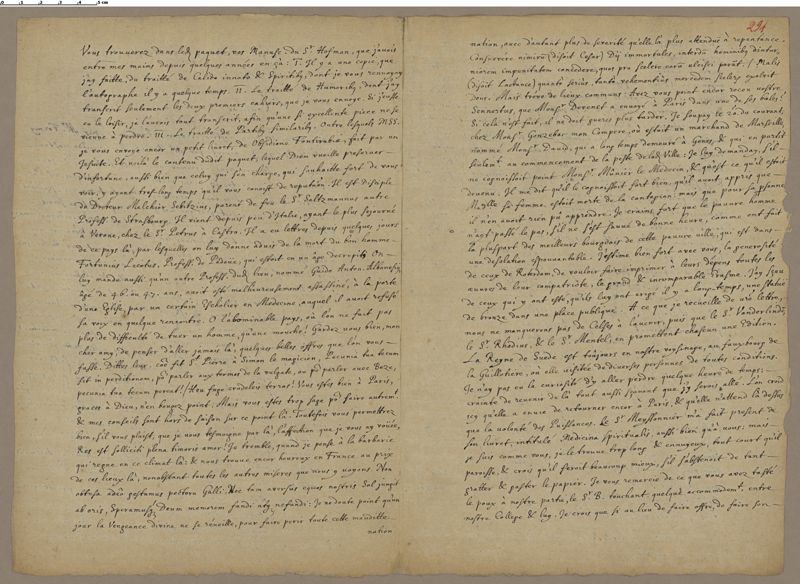 Vous trouverez dans led. paquet, vos Manusc. du Sr. Hofman, que j'avois
entre mes mains depuis quelques années en çà: I. Il y a une copie, que
j'ay faitte, du traitté de Calido innato & Spiritib, dont je vous renvoyay
l'autographe il y a quelque temps. II. Le traitté de Humorib, dont j'ay
transcrit seulement les deux premiers cahiers, que je vous envoye. Si j'eusse
eu le loisir, je l'aurois tout transcrit, afin qu'une si excellente piece ne se
vienne à perdre. III. Le traitté de Partib. similarib. Outre lesquels MSS.
je vous envoye encor un petit livret, de Obsidione Fontirabiæ, fait par un
Jesuite. Et voilà le contenu dudit paquet, lequel Dieu veuille preserver
d'infortune, aussi bien que celuy qui s'en charge, qui souhaitte fort de vous
voir, y ayant trop long temps qu'il vous conoist de reputaõn. Il est disciple
du Docteur Melchior Sebitzius, parent de feu le Sr. Saltzmannus autre
Professr. de Strasbourg. Il vient depuis peu d'Italie, ayant le plus sejourné
à Verone, chez le Sr. Petrus à Castro. Il a eu lettres depuis quelques jours
de ce pays là, par lesquelles on luy donne advis de la mort du bon homme
Fortunius Licetus, Professr. de Padoüe, qui estoit en un âge decrepit. On
luy mande aussi qu'un autre Professr. dud. lieu, nommé Guido Anton. Albanesius,
âgé de 46. ou 47. ans, avoit esté malheureusement assassiné, à la porte
d'une Eglise, par un certain Escholier en Medecine, auquel il avoit refusé
sa voix en quelque rencontre. O l'abominable pays, où l'on ne fait pas
plus de difficulté de tuer un homme, qu'une mouche! Gardez vous bien, mon
cher amy, de penser d'aller jamais là, quelques belles offres que l'on vous
fasse. Dittes leur, com̃e fit St. Pierre à Simon le magicien, Pecunia tua tecum
sit in perditionem, pr. parler aux termes de la vulgate, ou pr. parler avec Beze,
pecunia tua tecum pereat! Heu fuge crudeles terras! Vous estes bien à Paris,
graces à Dieu, n'en bougez point. Mais vous estes trop sage pr. faire autremt.
& mes conseils sont hors de saison sur ce point là. Toutefois vous permettrez
bien, s'il vous plaist, que je vous tesmoigne par là, l'affection que je vous ay voüée,
Res est solliciti plena timoris amor! Je tremble, quand je pense à la barbarie
qui regne en ce climat là: & nous trouve encor heureux en France au prix
de ces lieux là, nonobstant toutes les autres miseres que nous y voyons. Non
obtusa adeò gestamus pectora Galli: Nec tam aversus equos nostris Sol jungit
ab oris, Speramusq. Deum memorem fandi atq. nefandi: Je redoute point qu'un
jour la Vengeance divine ne se réveille, pour faire perir toute cette mauditte
nation
291
nation, avec d'autant plus de severité qu'elle la plus attendüe à repentance.
Consuevere nimirũ (disoit Cesar) Dij immortales, interdũ hominib, diutur,
niorem impunitatem concedere, quos pro scelere eorũ ulcisci parãt. / Malis
(disoit Lactance) quantò seriùs, tantò vehementiùs mercedem sceleris exolvit
Deus. Mais treve de lieux communs: Avez vous point encor receu nostre
Sennertus, que Monsr. Devenet a envoyé à Paris dans une de ses bales?
Si cela n'est fait, il ne doit gueres plus tarder. Je soupay le 20. du courant
chez Monsr. Gonzebar mon Compere, où estoit un marchand de Marseille
nommé Monsr. David, qui a long temps demeuré à Genes, & qui en partit
seulemt. au commencement de la peste de lad. Ville: Je luy demanday, s'il
ne cognoissoit point Monsr. Musnier le Medecin, & qu'est ce qu'il estoit
devenu. Il me dit qu'il le cognoissoit fort bien, qu'il avoit appris que
Maylle sa femme estoit morte de la contagion: mais que pour sa personne
il n'en avoit rien pû apprendre. Je crains fort que le pauvre homme
n'ayt passé le pas, s'il ne s'est sauvé de bonne heure, comme ont fait
la pluspart des meilleurs bourgeois de cette pauvre ville, qui est dans
une desolation espouvantable. J'estime bien fort avec vous, la generosité
de ceux de Roterdam, de vouloir faire imprimer à leurs dépens toutes les
œuvres de leur compatriote, le grand & incomparable Erasme. J'ay sçeu
de ceux qui y ont esté, qu'ils luy ont erigé il y a long-temps, une statüe
de bronze dans une place publique. A ce que je recueille de vre lettre,
nous ne manquerons pas de Celses à l'avenir, puis que le Sr. Vanderlinden,
le Sr. Rhodius, & le Sr. Mentel, en promettent chascun une Edition.
La Reyne de Suede est tousjours en nostre voisinage, au fauxbourg de
la Guillotiere, où elle est visitée de diverses personnes de toutes conditions.
Je n'ay pas eu la curiosité d'y aller perdre quelque heure de temps:
crainte de revenir de là tout aussi sçavant que j'y serois allé. L'on croid
icy qu'elle a envie de retourner encor à Paris, & qu'elle n'attend là dessus
que la volonté des Puissances. Le Sr. Meyssonnier m'a fait present de
son livret, intitulé Medicina spiritualis, aussi bien qu'à vous: mais
je suis comme vous, je le trouve trop long & ennuyeux, tout court qu'il
paroisse, & crois qu'il feroit beaucoup mieux, s'il s'abstenoit de tant
gratter & gaster le papier. Je vous remercie de ce que vous avez tasté
le poux à nostre parta, le Sr. B. touchant quelque accommodemt. entre
nostre College & luy. Je crois que si au lieu de faire offre, de faire son-